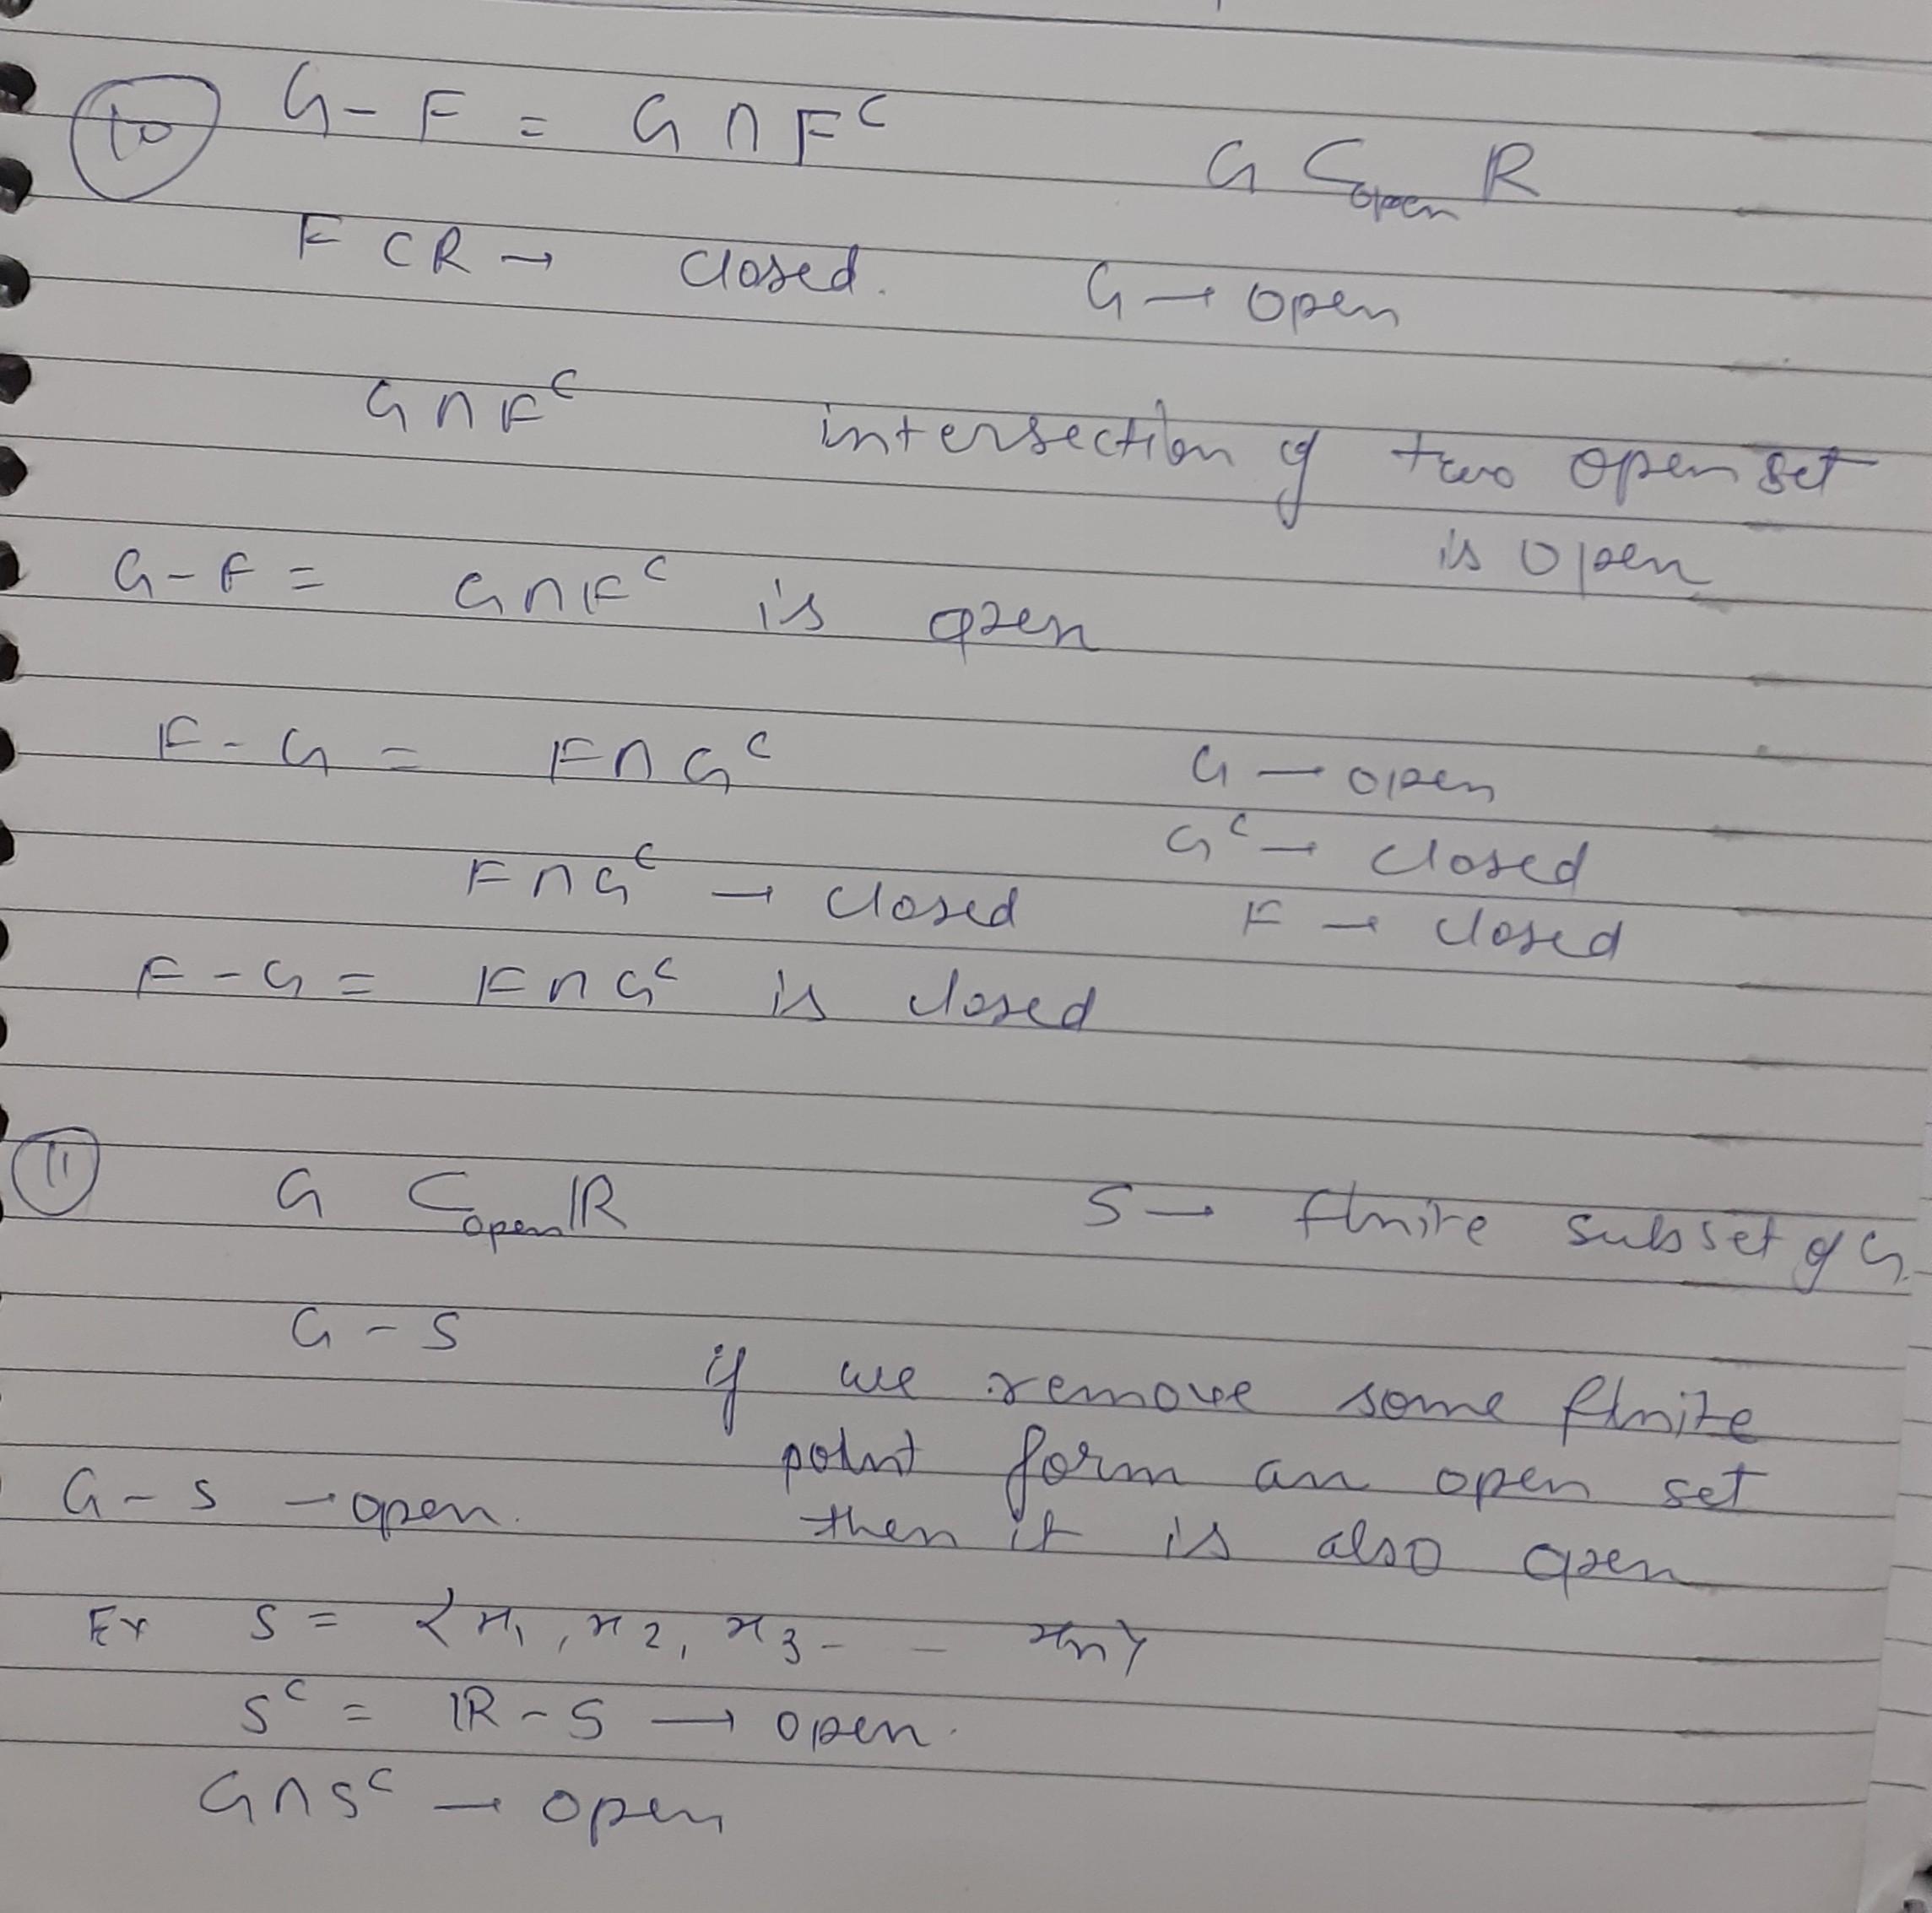 10 G - F = G ∩ F^c
G ⊂open R
F ⊂ R → closed. G → open
G ∩ F^c intersection of two open set
is open
G - F = G ∩ F^c is open
F - G = F ∩ G^c G → open
G^c → closed
F ∩ G^c → closed F → closed
F - G = F ∩ G^c is closed
11 G ⊂open ℝ S → finite subset of G.
G - S
if we remove some finite
point form an open set
G - S → open. then it is also open
Ex S = {x1, x2, x3 - - xn}
S^c = ℝ - S → open.
G ∩ S^c → open